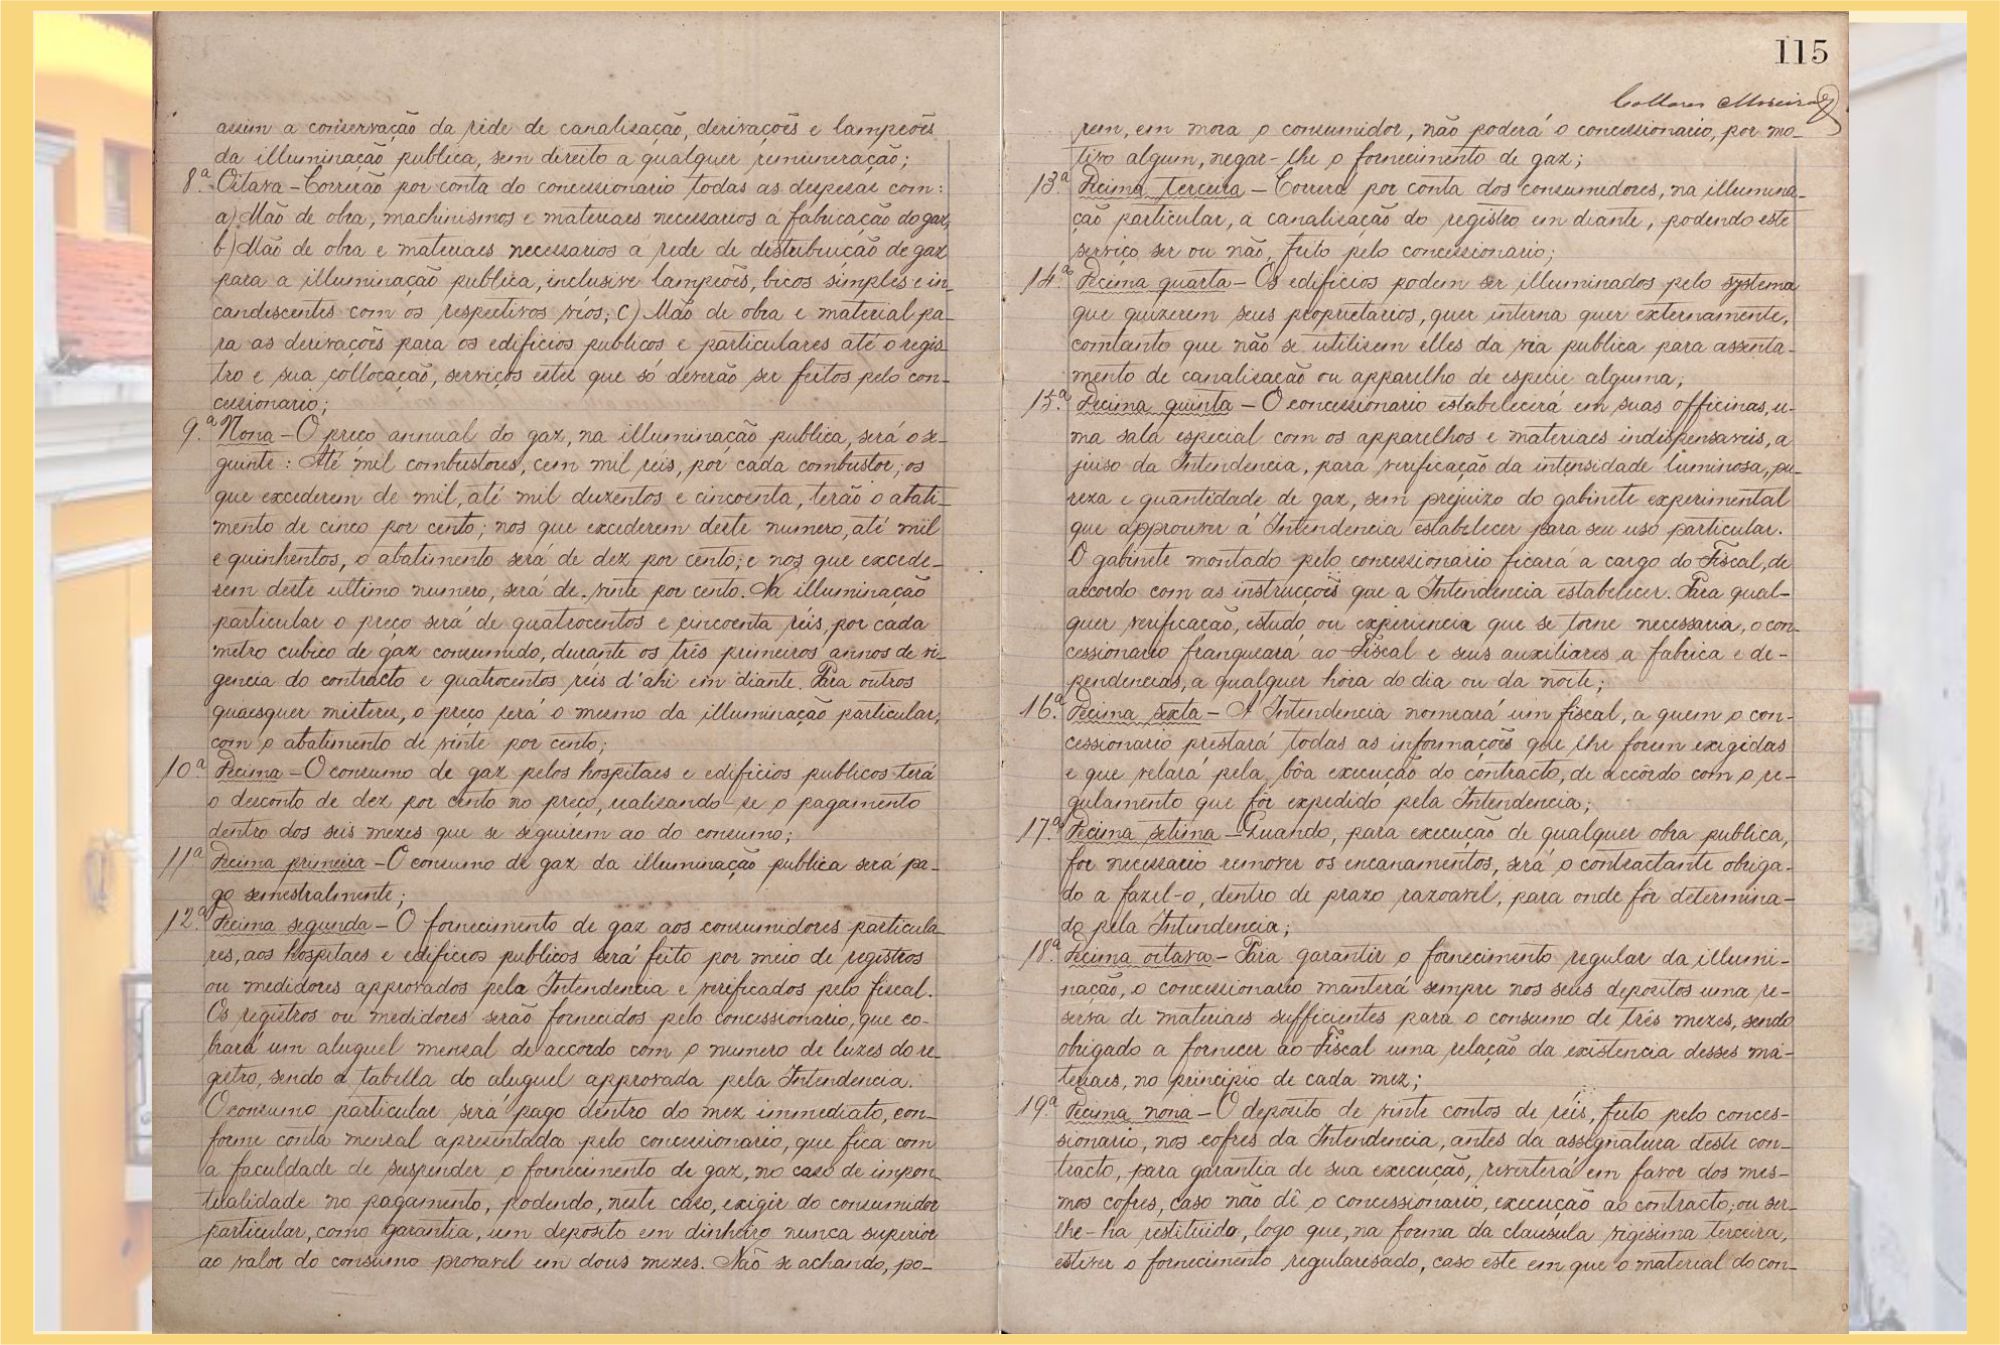 assim a conservação da rêde de canalisação, derivações e lampeões
da illuminação publica, sem direito a qualquer remuneração;
8.ª Oitava - Correrão por conta do concessionario todas as despesas com:
a) Mão de obra, machinismos e materiaes necessarios á fabricação do gaz,
b) Mão de obra e materiaes necessarios a rede de distribuição de gaz
para a illuminação publica, inclusive lampeões, bicos simples e in-
candescentes com os respectivos véos; c) Mão de obra e material pa-
ra as derivações para os edificios publicos e particulares até o regis-
tro e sua collocação, serviços estes que só deverão ser feitos pelo con-
cessionario;
9.ª Nona - O preço annual do gaz, na illuminação publica, será o se-
guinte: Até mil combustores, cem mil réis, por cada combustor; os
que excederem de mil, até mil duzentos e cincoenta, terão o abati-
mento de cinco por cento; nos que excederem deste numero, até mil
e quinhentos, o abatimento será de dez por cento; e nos que excede-
rem deste ultimo numero, será de vinte por cento. Na illuminação
particular o preço será de quatrocentos e cincoenta réis, por cada
metro cubico de gaz consumido, durante os três primeiros annos de vi-
gencia do contracto e quatrocentos réis d'ahi em diante. Para outros
quaesquer misteres, o preço será o mesmo da illuminação particular,
com o abatimento de vinte por cento;
10ª Decima - O consumo de gaz pelos hospitaes e edificios publicos terá
o desconto de dez por cento no preço, realisando-se o pagamento
dentro dos seis mezes que se seguirem ao do consumo;
11ª Decima primeira - O consumo de gaz da illuminação publica será pa-
go semestralmente;
12.ª Decima segunda - O fornecimento de gaz aos consumidores particula-
res, aos hospitaes e edificios publicos será feito por meio de registros
ou medidores approvados pela Intendencia e verificados pelo fiscal.
Os registros ou medidores serão fornecidos pelo concessionario, que co-
brará um aluguel mensal de accordo com o numero de luzes do re-
gistro, sendo a tabella do aluguel approvada pela Intendencia.
O consumo particular será pago dentro do mez immediato, con-
forme conta mensal apresentada pelo concessionario, que fica com
a faculdade de suspender o fornecimento de gaz, no caso de impon-
tualidade no pagamento, podendo, neste caso, exigir do consumidor
particular, como garantia, um deposito em dinheiro nunca superior
ao valor do consumo provavel em dous mezes. Não se achando, po-
115
Collares Moreira
rem, em mora o consumidor, não poderá o concessionario, por mo-
tivo algum, negar-lhe o fornecimento de gaz;
13.ª Decima terceira - Correrá por conta dos consumidores, na illumina-
ção particular, a canalisação do registro em diante, podendo este
serviço ser ou não, feito pelo concessionario;
14.ª Decima quarta - Os edificios podem ser illuminados pelo systema
que quizerem seus proprietarios, quer interna quer externamente,
comtanto que não se utilisem elles da via publica para assenta-
mento de canalisação ou apparelho de especie alguma;
15.ª Decima quinta - O concessionario estabelecerá em suas officinas, u-
ma sala especial com os apparelhos e materiaes indispensaveis, a
juiso da Intendencia, para verificação da intensidade luminosa, pu-
reza e quantidade de gaz, sem prejuizo do gabinete experimental
que approuver á Intendencia estabelecer para seu uso particular.
O gabinete montado pelo concessionario ficará a cargo do Fiscal, de
accordo com as instrucções que a Intendencia estabelecer. Para qual-
quer verificação, estudo ou experiencia que se torne necessaria, o con-
cessionario franqueará ao Fiscal e seus auxiliares a fabrica e de-
pendencias, a qualquer hora do dia ou da noite;
16.ª Decima sexta - A Intendencia nomeará um fiscal, a quem o con-
cessionario prestará todas as informações que lhe forem exigidas
e que velará pela bôa execução do contracto, de accôrdo com o re-
gulamento que fôr expedido pela Intendencia;
17.ª Decima setima - Quando, para execução de qualquer obra publica,
for necessario remover os encanamentos, será o contractante obriga-
do a fazel-o, dentro de prazo razoavel, para onde fôr determina-
do pela Intendencia;
18.ª Decima oitava - Para garantir o fornecimento regular da illumi-
nação, o concessionario manterá sempre nos seus depositos uma re-
serva de materiaes sufficientes para o consumo de três mezes, sendo
obrigado a fornecer ao Fiscal uma relação da existencia desses ma-
teriaes, no principio de cada mez;
19.ª Decima nona - O deposito de vinte contos de réis, feito pelo conces-
sionario, nos cofres da Intendencia, antes da assignatura deste con-
tracto, para garantia de sua execução, reverterá em favor dos mes-
mos cofres, caso não dê o concessionario, execução ao contracto; ou ser-
lhe-ha restituido, logo que, na forma da clausula vigisima terceira,
estiver o fornecimento regularisado, caso este em que o material do con-